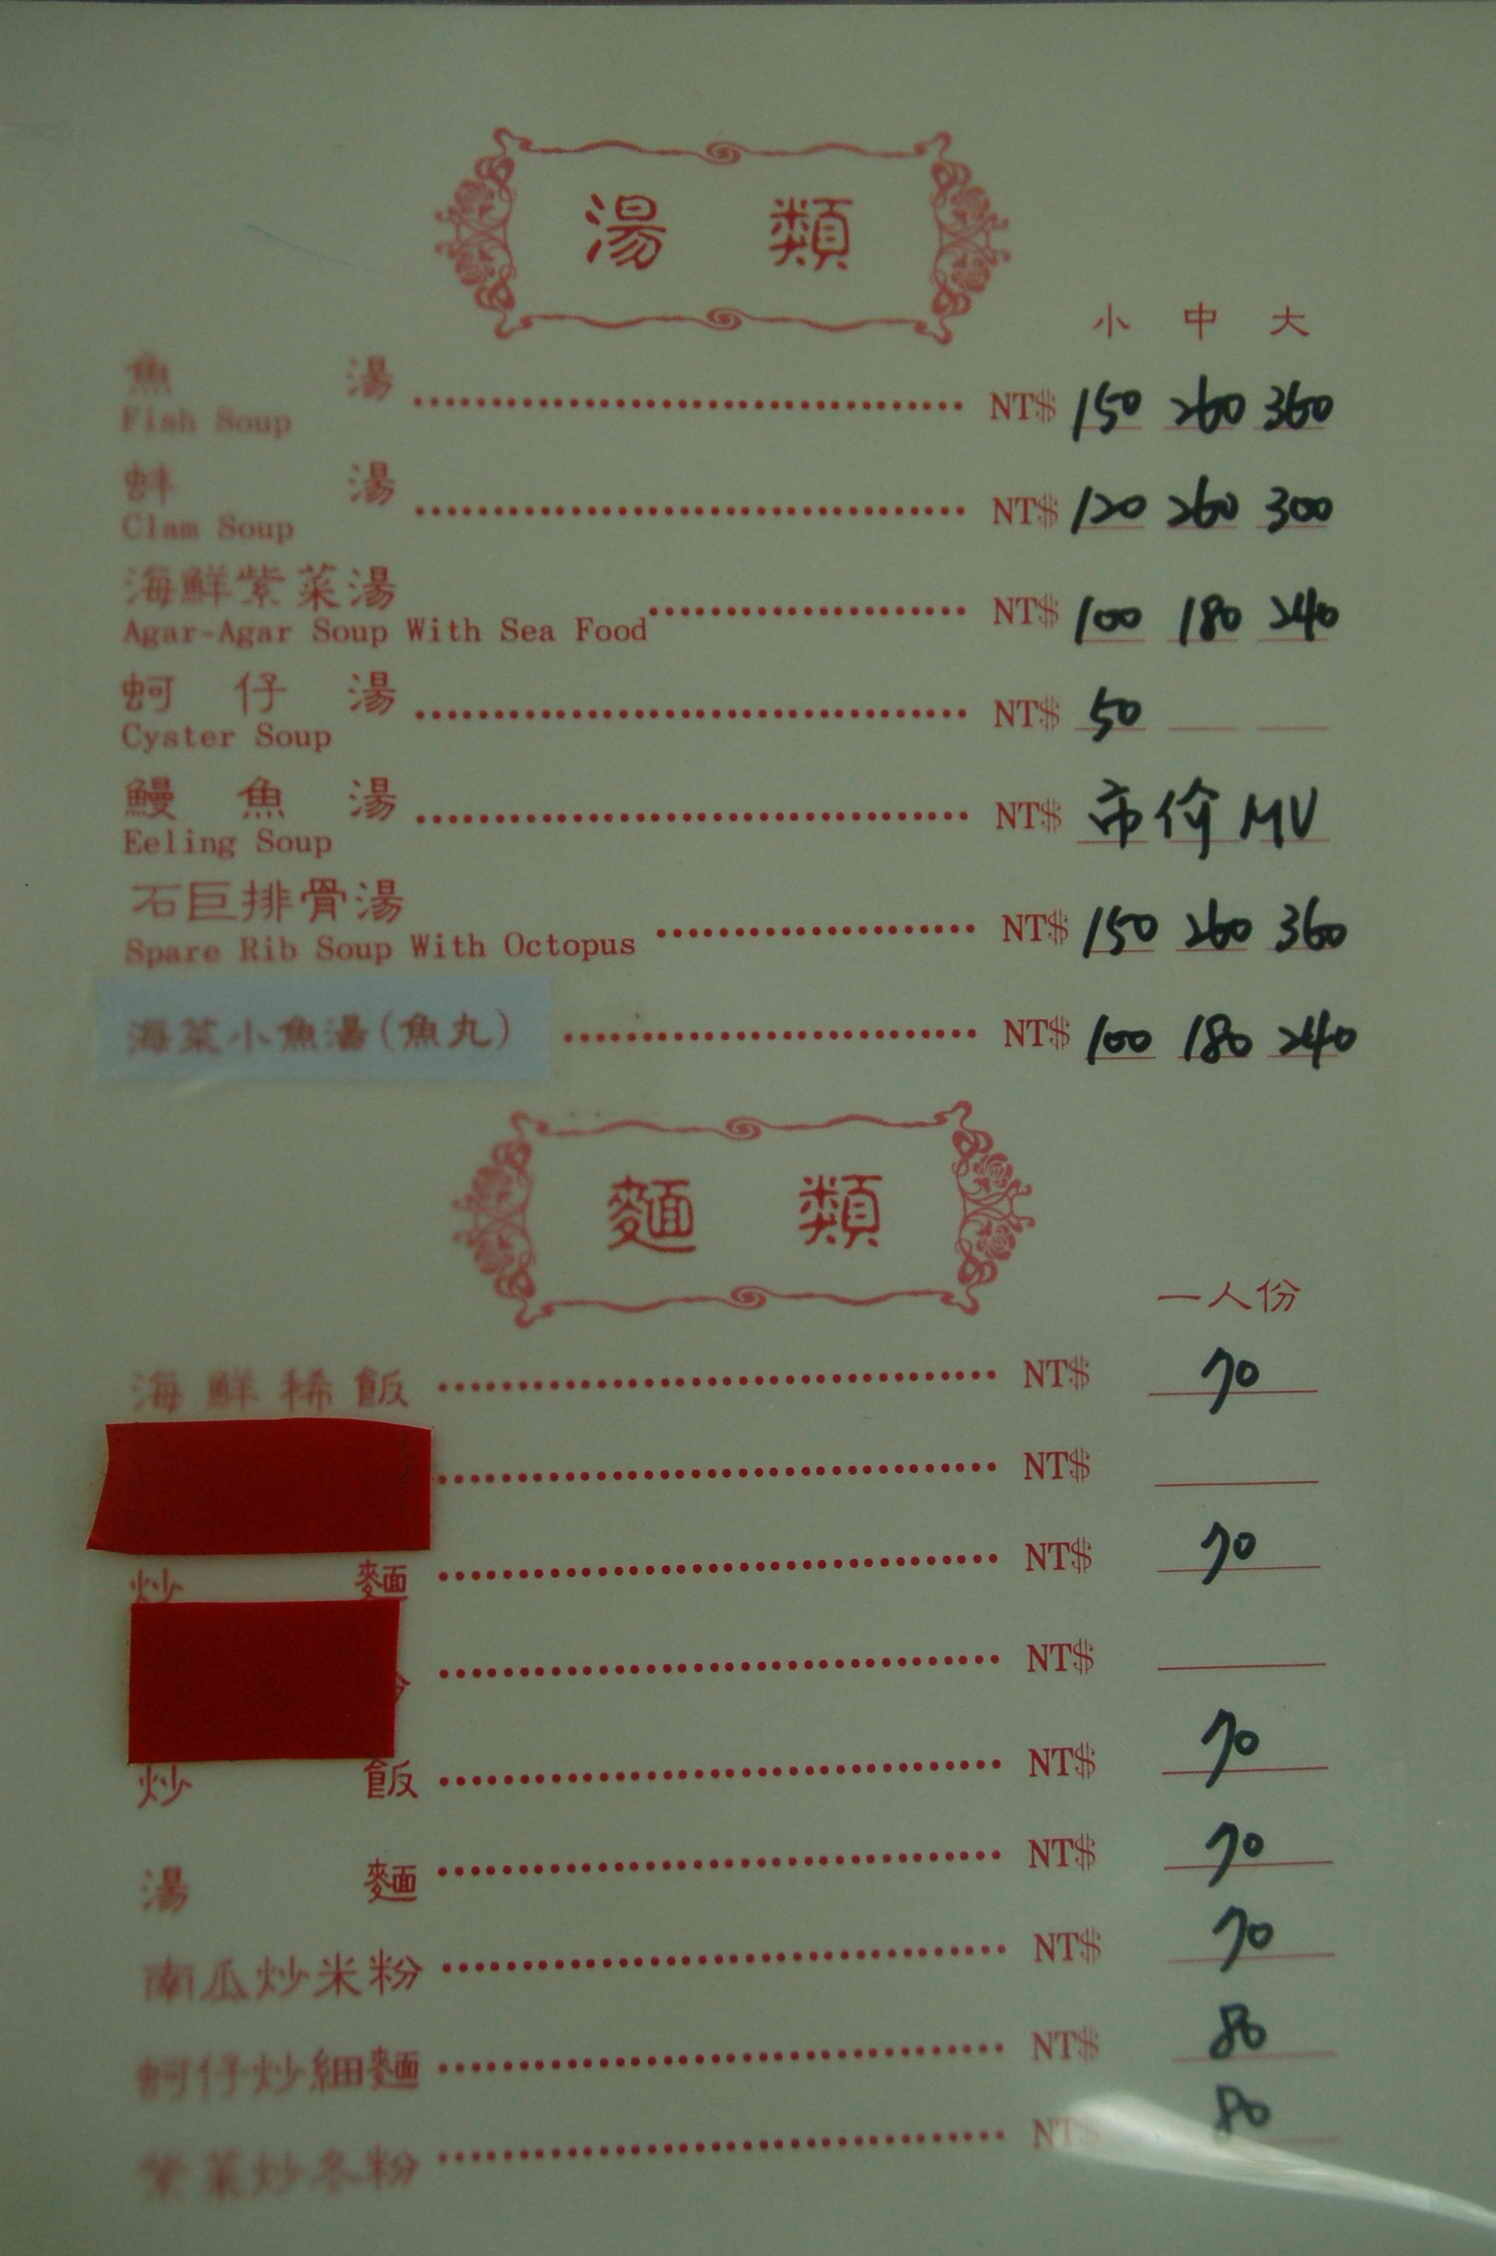 湯 類
小 中 大
魚 湯 NT$ 150 260 360
Fish Soup
蚌 湯 NT$ 120 260 300
Clam Soup
海鮮紫菜湯 NT$ 100 180 240
Agar-Agar Soup With Sea Food
蚵 仔 湯 NT$ 50
Cyster Soup
鰻 魚 湯 NT$ 市价 MV
Eeling Soup
石巨排骨湯 NT$ 150 260 360
Spare Rib Soup With Octopus
海菜小魚湯(魚丸) NT$ 100 180 240
麵 類
一人份
海鮮稀飯 NT$ 70
NT$
炒 麵 NT$ 70
NT$
炒 飯 NT$ 70
湯 麵 NT$ 70
南瓜炒米粉 NT$ 70
蚵仔炒細麵 NT$ 80
紫菜炒冬粉 NT$ 80